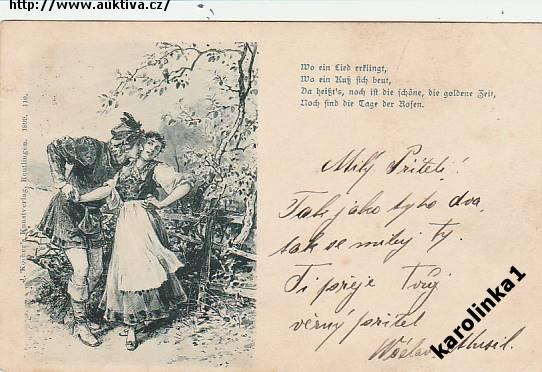 http://www.auktiva.cz/
Wo ein Lied erklingt,
Wo ein Kuß sich beut,
Da heißt's, noch ist die schöne, die goldene Zeit,
Noch sind die Tage der Rosen.
J. Kocher's Kunstverlag, Reutlingen. 1899. 110.
Milý Příteli!
Tak jako tyto dva,
tak se miluj Ty.
Ti přeje Tvůj
věrný přítel
Václav Musil.
karolinka1